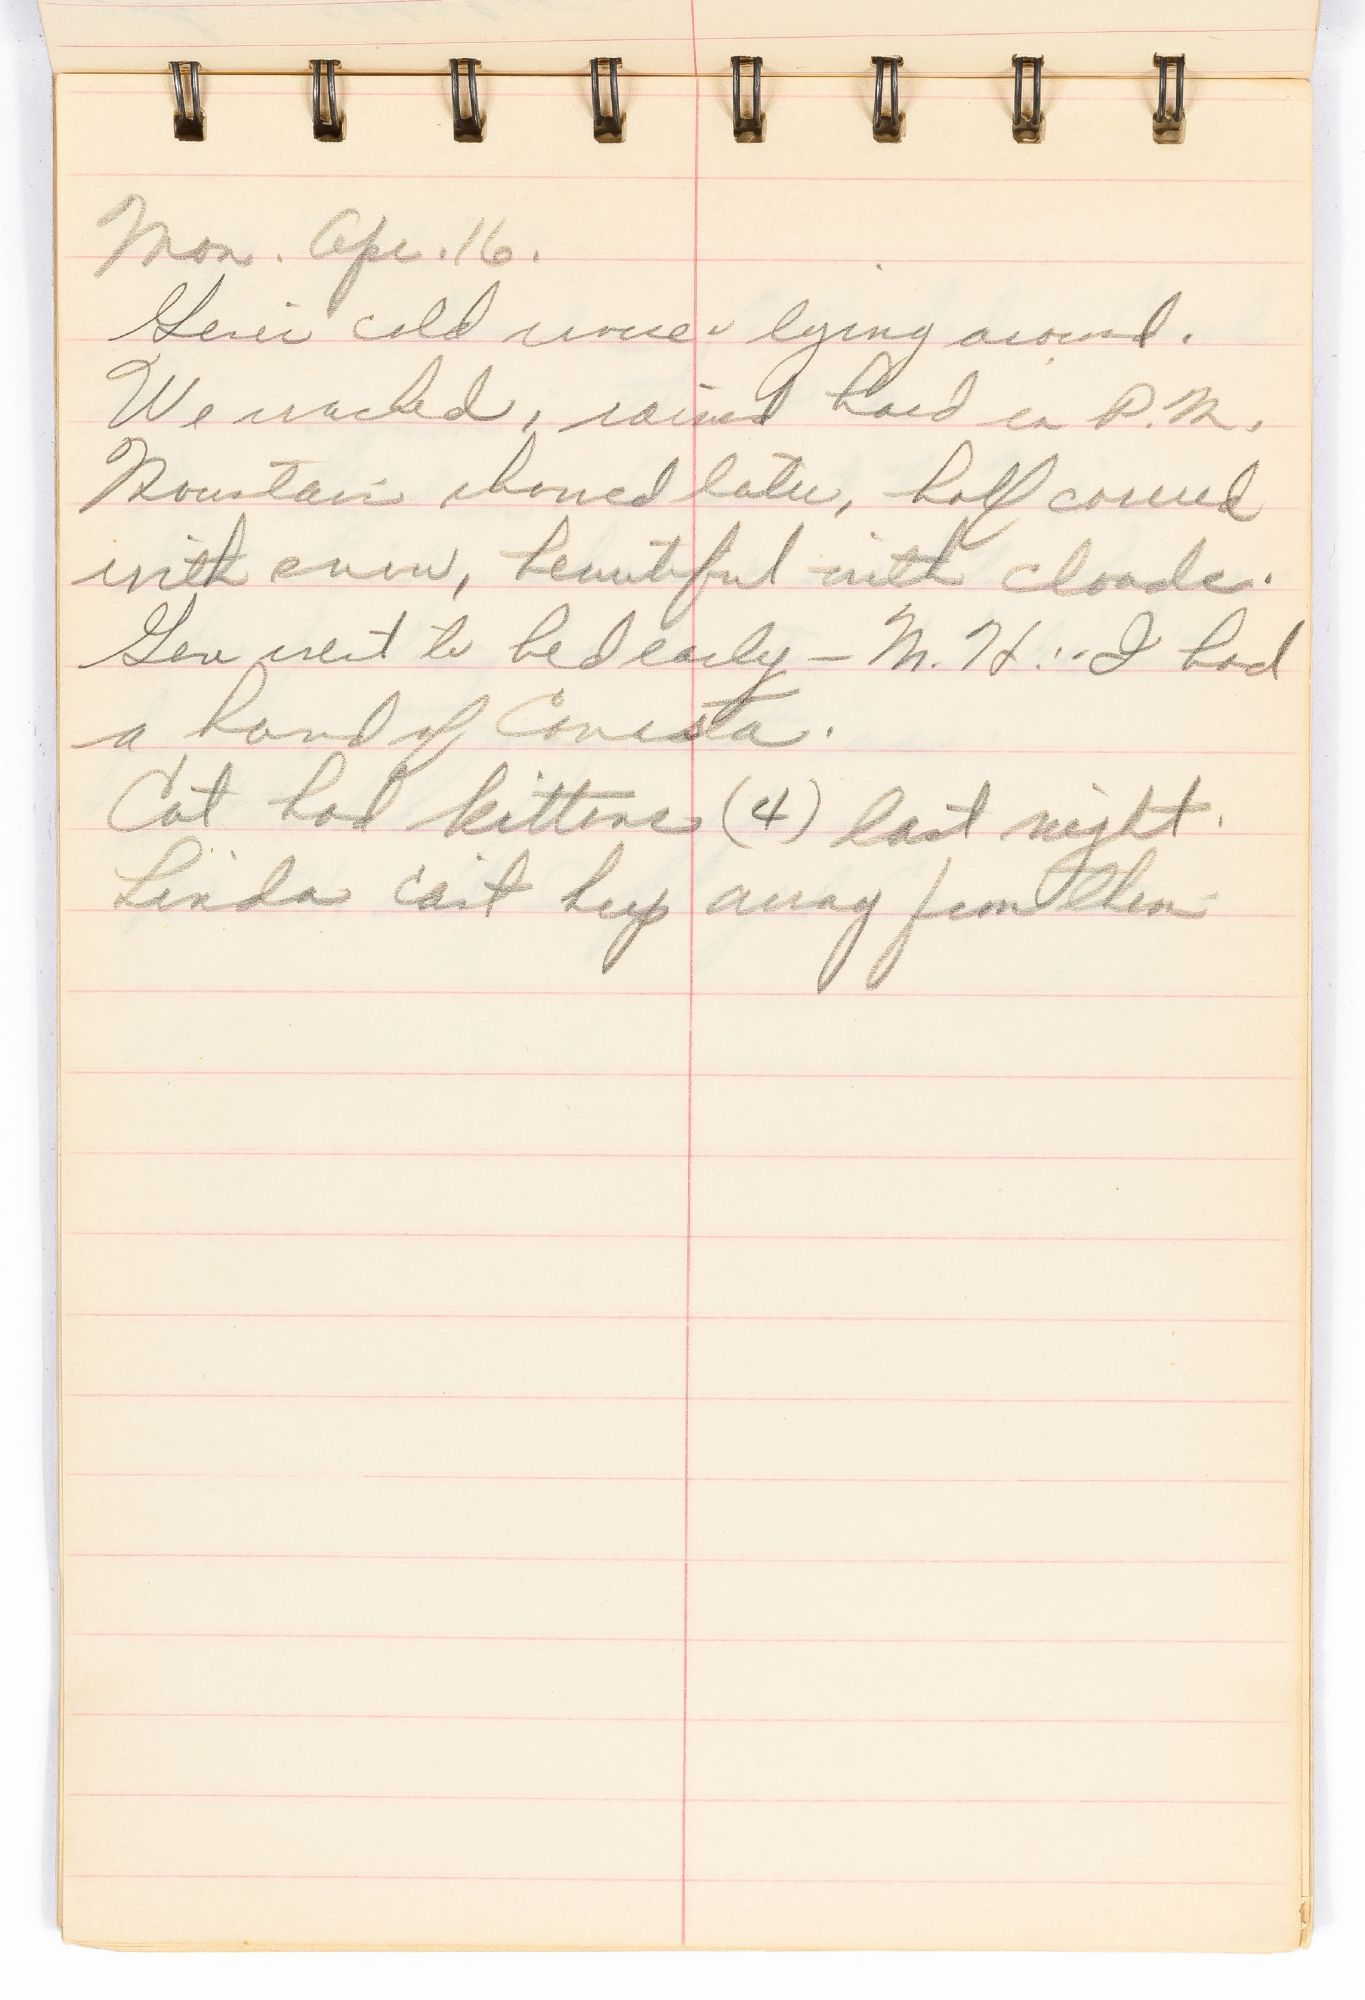 Mon. Apr. 16.
Gen's cold worse lying around.
We washed, rained hard in P.M.
Mountain showed later, half covered
with snow, beautiful with clouds.
Gen went to bed early – M. H. I had
a hand of Canasta.
Cat had kittens (4) last night.
Linda can't keep away from them